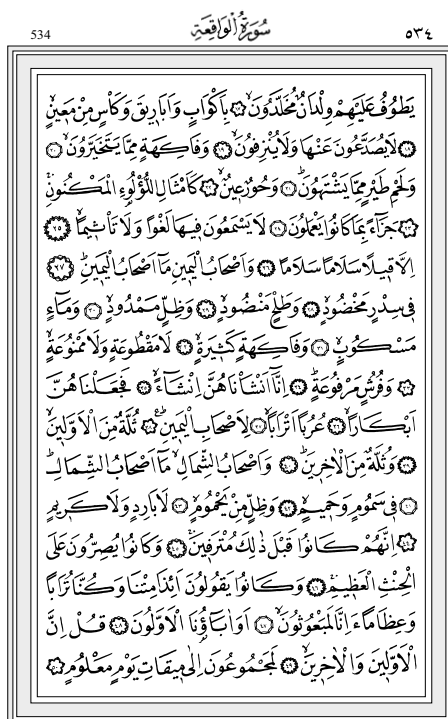 534 سُورَةُ الْوَاقِعَةِ ٥٣٤
يَطُوفُ عَلَيْهِمْ وِلْدَانٌ مُخَلَّدُونَۙ ﴿١٧﴾ بِاَكْوَابٍ وَاَبَار۪يقَ وَكَأْسٍ مِنْ مَع۪ينٍۙ
﴿١٨﴾ لَا يُصَدَّعُونَ عَنْهَا وَلَا يُنْزِفُونَۙ ﴿١٩﴾ وَفَاكِهَةٍ مِمَّا يَتَخَيَّرُونَۙ ﴿٢٠﴾
وَلَحْمِ طَيْرٍ مِمَّا يَشْتَهُونَۜ ﴿٢١﴾ وَحُورٌ ع۪ينٌۙ ﴿٢٢﴾ كَاَمْثَالِ اللُّؤْلُؤِ۬ الْمَكْنُونِۚ
﴿٢٣﴾ جَزَٓاءً بِمَا كَانُوا يَعْمَلُونَ ﴿٢٤﴾ لَا يَسْمَعُونَ ف۪يهَا لَغْوًا وَلَا تَأْث۪يمًاۙ ﴿٢٥﴾
اِلَّا ق۪يلًا سَلَامًا سَلَامًا ﴿٢٦﴾ وَاَصْحَابُ الْيَم۪ينِ مَٓا اَصْحَابُ الْيَم۪ينِۜ ﴿٢٧﴾
ف۪ي سِدْرٍ مَخْضُودٍۙ ﴿٢٨﴾ وَطَلْحٍ مَنْضُودٍۙ ﴿٢٩﴾ وَظِلٍّ مَمْدُودٍۙ ﴿٣٠﴾ وَمَٓاءٍ
مَسْكُوبٍۙ ﴿٣١﴾ وَفَاكِهَةٍ كَث۪يرَةٍۙ ﴿٣٢﴾ لَا مَقْطُوعَةٍ وَلَا مَمْنُوعَةٍۙ
﴿٣٣﴾ وَفُرُشٍ مَرْفُوعَةٍۜ ﴿٣٤﴾ اِنَّٓا اَنْشَأْنَاهُنَّ اِنْشَٓاءًۙ ﴿٣٥﴾ فَجَعَلْنَاهُنَّ
اَبْكَارًاۙ ﴿٣٦﴾ عُرُبًا اَتْرَابًاۙ ﴿٣٧﴾ لِاَصْحَابِ الْيَم۪ينِۜ ﴿٣٨﴾ ثُلَّةٌ مِنَ الْاَوَّل۪ينَۙ
﴿٣٩﴾ وَثُلَّةٌ مِنَ الْاٰخِر۪ينَۜ ﴿٤٠﴾ وَاَصْحَابُ الشِّمَالِ مَٓا اَصْحَابُ الشِّمَالِۜ
﴿٤١﴾ ف۪ي سَمُومٍ وَحَم۪يمٍۙ ﴿٤٢﴾ وَظِلٍّ مِنْ يَحْمُومٍۙ ﴿٤٣﴾ لَا بَارِدٍ وَلَا كَر۪يمٍ
﴿٤٤﴾ اِنَّهُمْ كَانُوا قَبْلَ ذٰلِكَ مُتْرَف۪ينَۚ ﴿٤٥﴾ وَكَانُوا يُصِرُّونَ عَلَى
الْحِنْثِ الْعَظ۪يمِۚ ﴿٤٦﴾ وَكَانُوا يَقُولُونَ اَئِذَا مِتْنَا وَكُنَّا تُرَابًا
وَعِظَامًا ءَاِنَّا لَمَبْعُوثُونَۙ ﴿٤٧﴾ اَوَاٰبَٓاؤُ۬نَا الْاَوَّلُونَ ﴿٤٨﴾ قُلْ اِنَّ
الْاَوَّل۪ينَ وَالْاٰخِر۪ينَۙ ﴿٤٩﴾ لَمَجْمُوعُونَ اِلٰى م۪يقَاتِ يَوْمٍ مَعْلُومٍ ﴿٥٠﴾